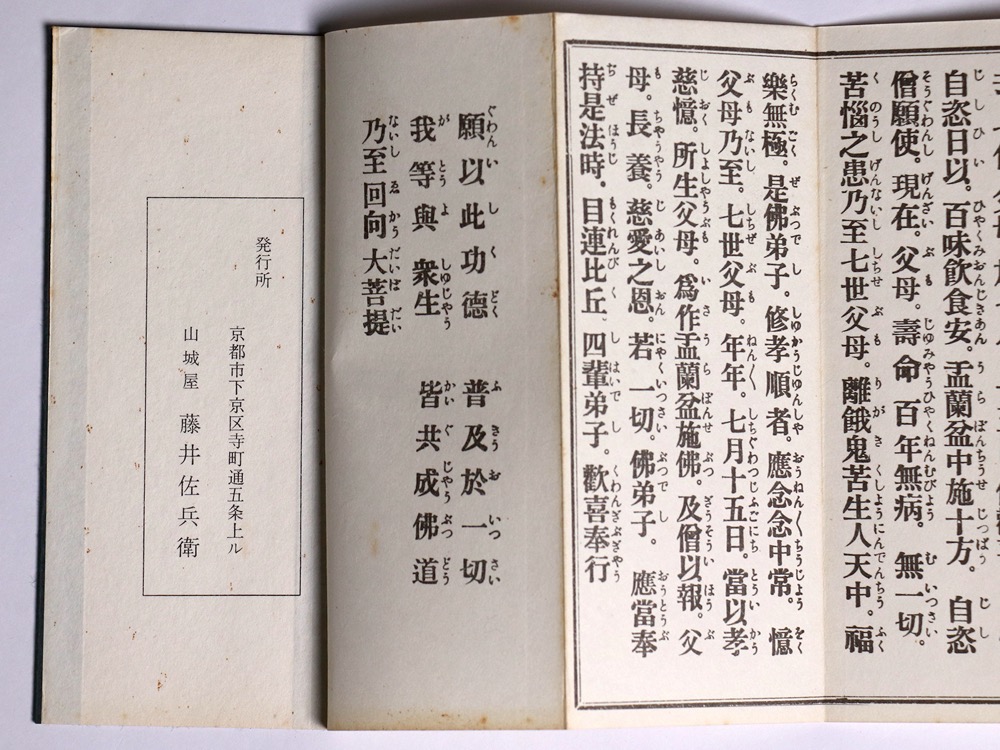 自恣日以。百味飮食安。盂蘭盆中施十方。自恣
僧願使。現在。父母。壽命百年無病。無一切。
苦惱之患乃至七世父母。離餓鬼苦生人天中。福
樂無極。是佛弟子。修孝順者。應念念中常。憶
父母乃至。七世父母。年年。七月十五日。當以孝。
慈憶。所生父母。爲作盂蘭盆施佛。及僧以報。父
母。長養。慈愛之恩。若一切。佛弟子。應當奉
持是法時。目連比丘、四輩弟子。歡喜奉行
願以此功德 普及於一切
我等與衆生 皆共成佛道
乃至回向大菩提
発行所
京都市下京区寺町通五条上ル
山城屋 藤井佐兵衛